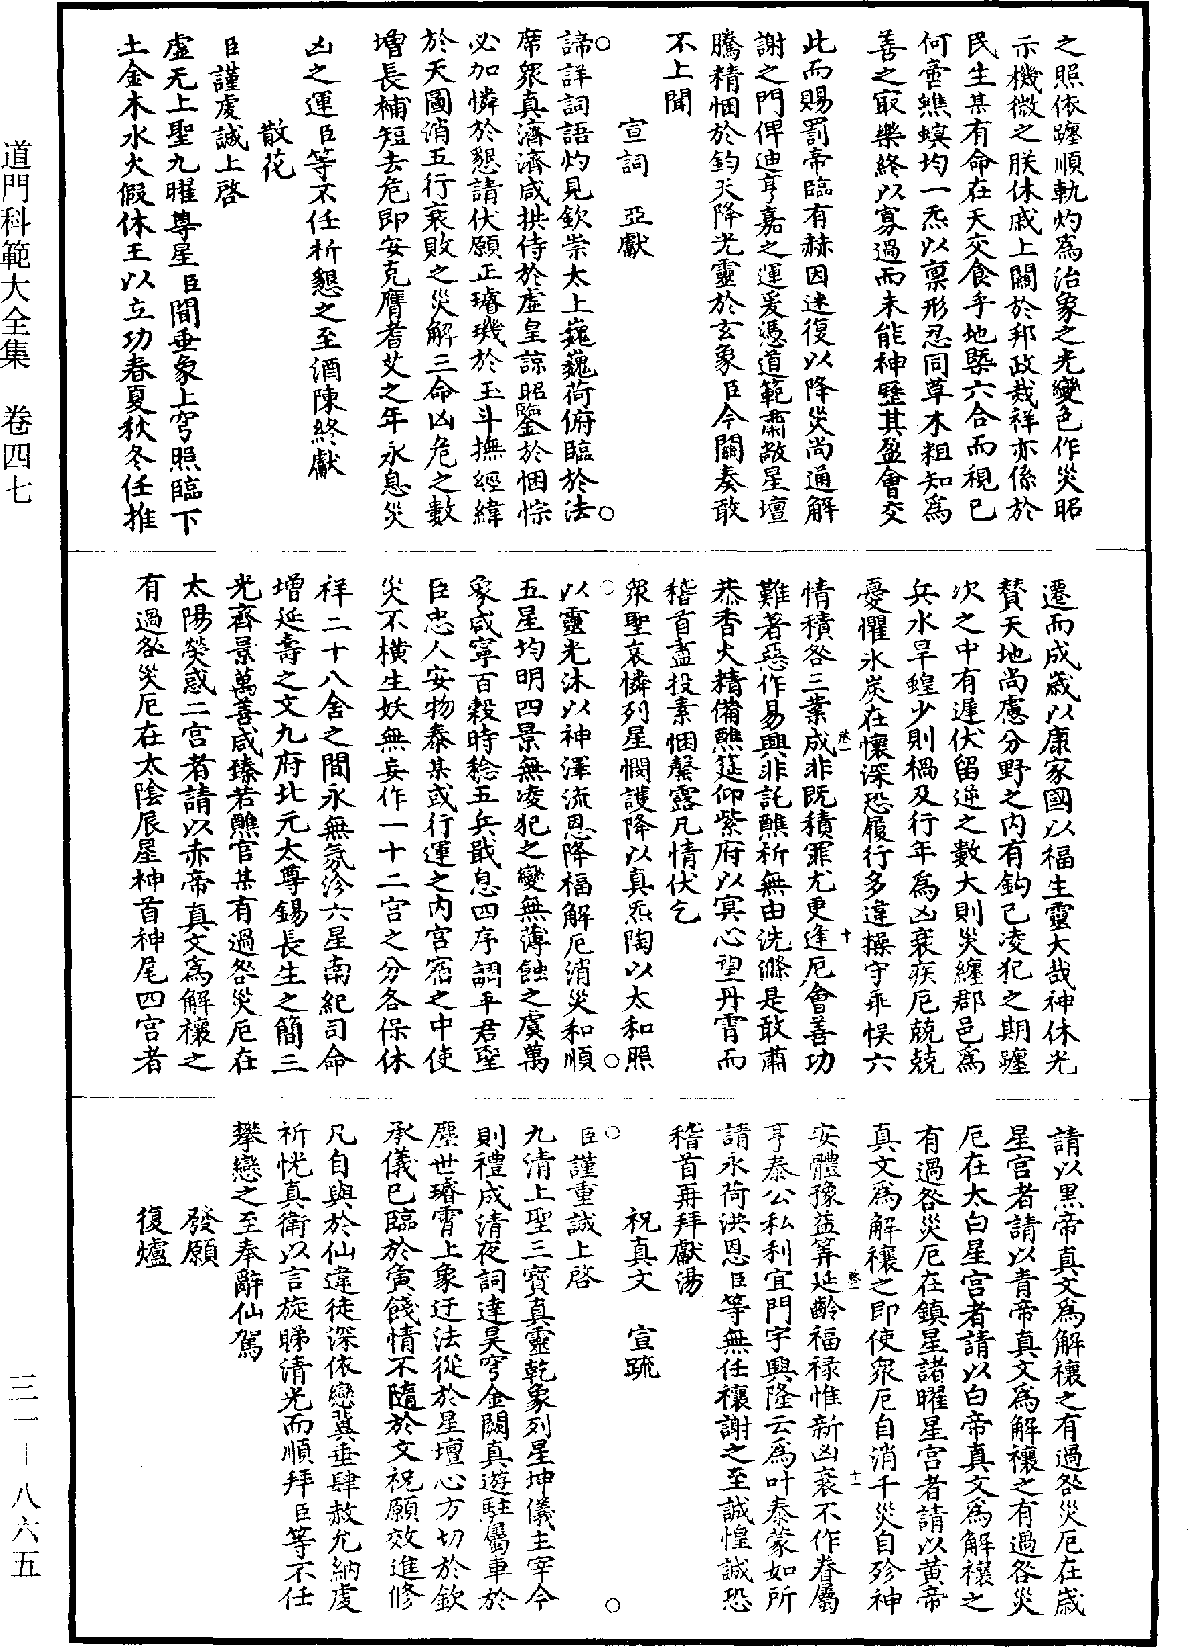 之照依躔順軌灼為治象之光變色作災昭
示機微之朕休戚上關於邦政栽祥亦係於
民生某有命在天交食乎地槩六合而視已
何啻蟭螟均一炁以禀形忍同草木粗知為
善之取樂終以寡過而未能神壓其盈會交
此而賜罰帝臨有赫因迷復以降災尚通解
謝之門俾迪亨嘉之運爰憑道範肅啟星壇
騰精悃於鈞天降光靈於玄象臣今關奏敢
不上聞
宣詞　亞獻
諦詳詞語灼見欽崇太上巍巍荷俯臨於法
席眾真濟濟咸拱侍於虛皇諒昭鑒於悃悰
必加憐於懇請伏願正璿璣於玉斗撫經緯
於天圖消五行衰敗之災解三命凶危之數
增長補短去危即安克膺耆艾之年永息災
凶之運臣等不任祈懇之至酒陳終獻
散花
臣謹虔誠上啓
虛无上聖九曜尊星臣聞垂象上穹照臨下
土金木水火假休王以立功春夏秋冬任推
遷而成歲以康家國以福生靈大哉神休光
賛天地尚慮分野之內有鈎己凌犯之期躔
次之中有遲伏留逆之數大則災纏郡邑為
兵水旱蝗少則禍及行年為凶衰疾厄兢兢
憂懼氷炭在懷深恐履行多違操守乖悮六
情積咎三業成非既積罪尤更逢厄會善功
難著惡作易興非託醮祈無由洗滌是敢肅
恭香火精備醮筵仰紫府以冥心望丹霄而
稽首盡投素悃罄露凡情伏乞
眾聖哀憐列星憫護降以真炁陶以太和照
以靈光沐以神澤流恩降福解厄消災和順
五星均明四景無凌犯之變無薄蝕之虞萬
象咸寧百穀時稔五兵戢息四序調平君聖
臣忠人安物泰某或行運之內宮宿之中使
災不橫生妖無妄作一十二宮之分各保休
祥二十八舍之間永無氛沴六星南紀司命
增延壽之文九府北元太尊錫長生之簡三
光齊景萬善咸臻若醮官某有過咎災厄在
太陽熒惑二宮者請以赤帝真文為解禳之
有過咎災厄在太陰辰星神首神尾四宮者
請以黑帝真文為解禳之有過咎災厄在歲
星宮者請以青帝真文為解禳之有過咎災
厄在太白星宮者請以白帝真文為解禳之
有過咎災厄在鎮星諸曜星宮者請以黃帝
真文為解禳之即使眾厄自消千災自殄神
安體豫益筭延齡福禄惟新凶衰不作眷屬
亨泰公私利宜門宇興隆云為叶泰蒙如所
請永荷洪恩臣等無任禳謝之至誠惶誠恐
稽首再拜獻湯
祝真文　宣疏
臣謹重誠上啓
九清上聖三寳真靈乾象列星坤儀主宰今
則禮成清夜詞達昊穹金闕真遊駐屬車於
塵世璿霄上象迂法從於星壇心方切於欽
承儀已臨於寅餞情不隨於文祝願效進修
凡自與於仙違徒深依戀冀垂肆赦尤納虔
祈恍真衛以言旋睇清光而順拜臣等不任
攀戀之至奉辭仙駕
發願
復爐
道門科範大全集　卷四七
三一－八六五